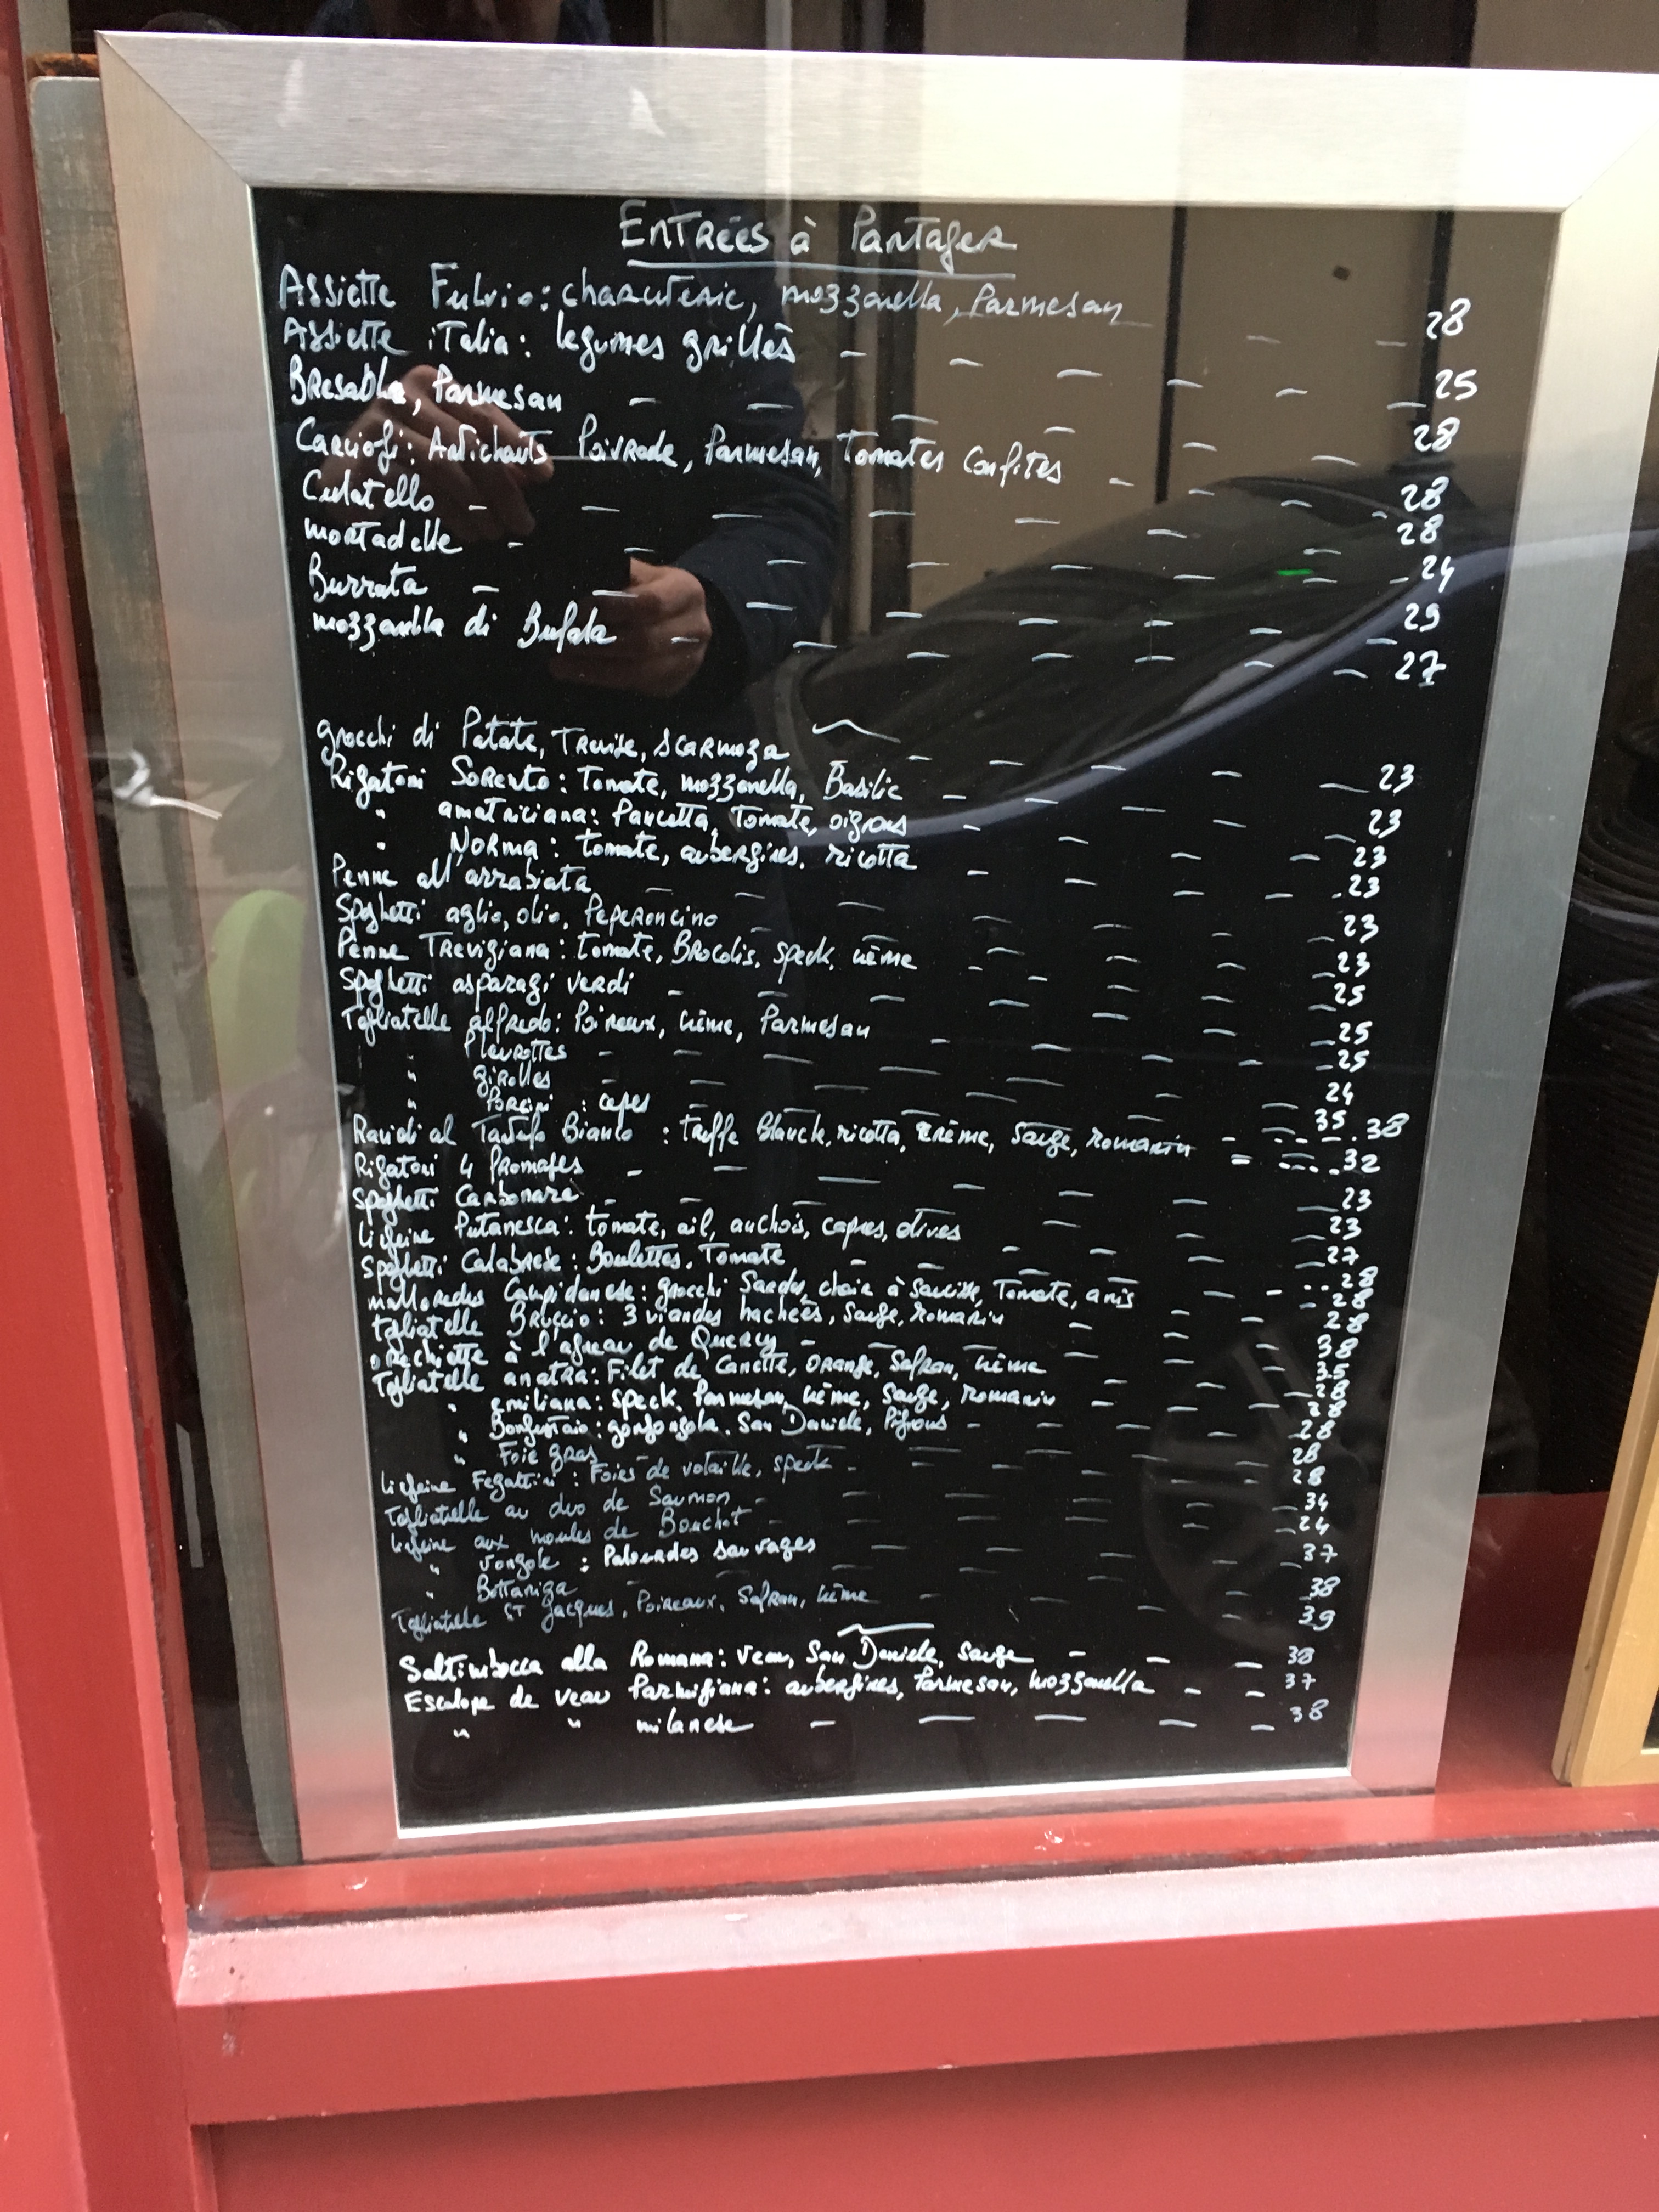 Entrées à Partager
Assiette Fulvio: charcuterie, mozzarella, Parmesan 28
Assiette iTalia: légumes grillés 25
Bresaola, Parmesan 28
Carciofi: Artichauts Poivrade, Parmesan, Tomates Confites 28
Culatello 28
mortadelle 24
Burrata 29
mozzarella di Bufala 27
gnocchi di Patate, Trevise, Scarmoza 23
Rigatoni Sorento: Tomate, mozzarella, Basilic 23
" amatriciana: Pancetta, Tomate, oignons 23
" Norma: tomate, aubergines, ricotta 23
Penne all'arrabiata 23
Spaghetti aglio, olio, Peperoncino 23
Penne Trevigiana: tomate, Brocolis, speck, crème 25
Spaghetti asparagi verdi 25
Tagliatelle alfredo: Poireaux, crème, Parmesan 25
" Pleurottes 24
" girolles 35
" Porcini: cèpes 38
Ravioli al Tartufo Bianco: truffe Blanche, ricotta, crème, Sauge, romarin 32
Rigatoni 4 fromages 23
Spaghetti Carbonara 23
Putanesca: tomate, ail, anchois, capres, olives 27
Spaghetti Calabrese: Boulettes, Tomate 28
Campidanese: gnocchi Sardes, chair à Saucisse, Tomate, anis 28
Tagliatelle 3 viandes hachées, Sauge, romarin 28
orechiette à l'agneau de Quercy 38
Tagliatelle anatra: Filet de Canette, orange, Safran, crème 35
" emiliana: speck, Parmesan, crème, Sauge, romarin 28
" gorgonzola, San Daniele, Pignons 28
" Foie gras 28
Fegattini: Foies de volaille, speck 28
Tagliatelle au duo de Saumon 34
aux moules de Bouchot 24
" vongole: Palourdes Sauvages 37
" Bottariga 38
Tagliatelle ST Jacques, Poireaux, Safran, crème 39
Saltimbocca alla Romana: veau, San Daniele, Sauge 38
Escalope de veau Parmigiana: aubergines, Parmesan, mozzarella 37
" " milanese 38